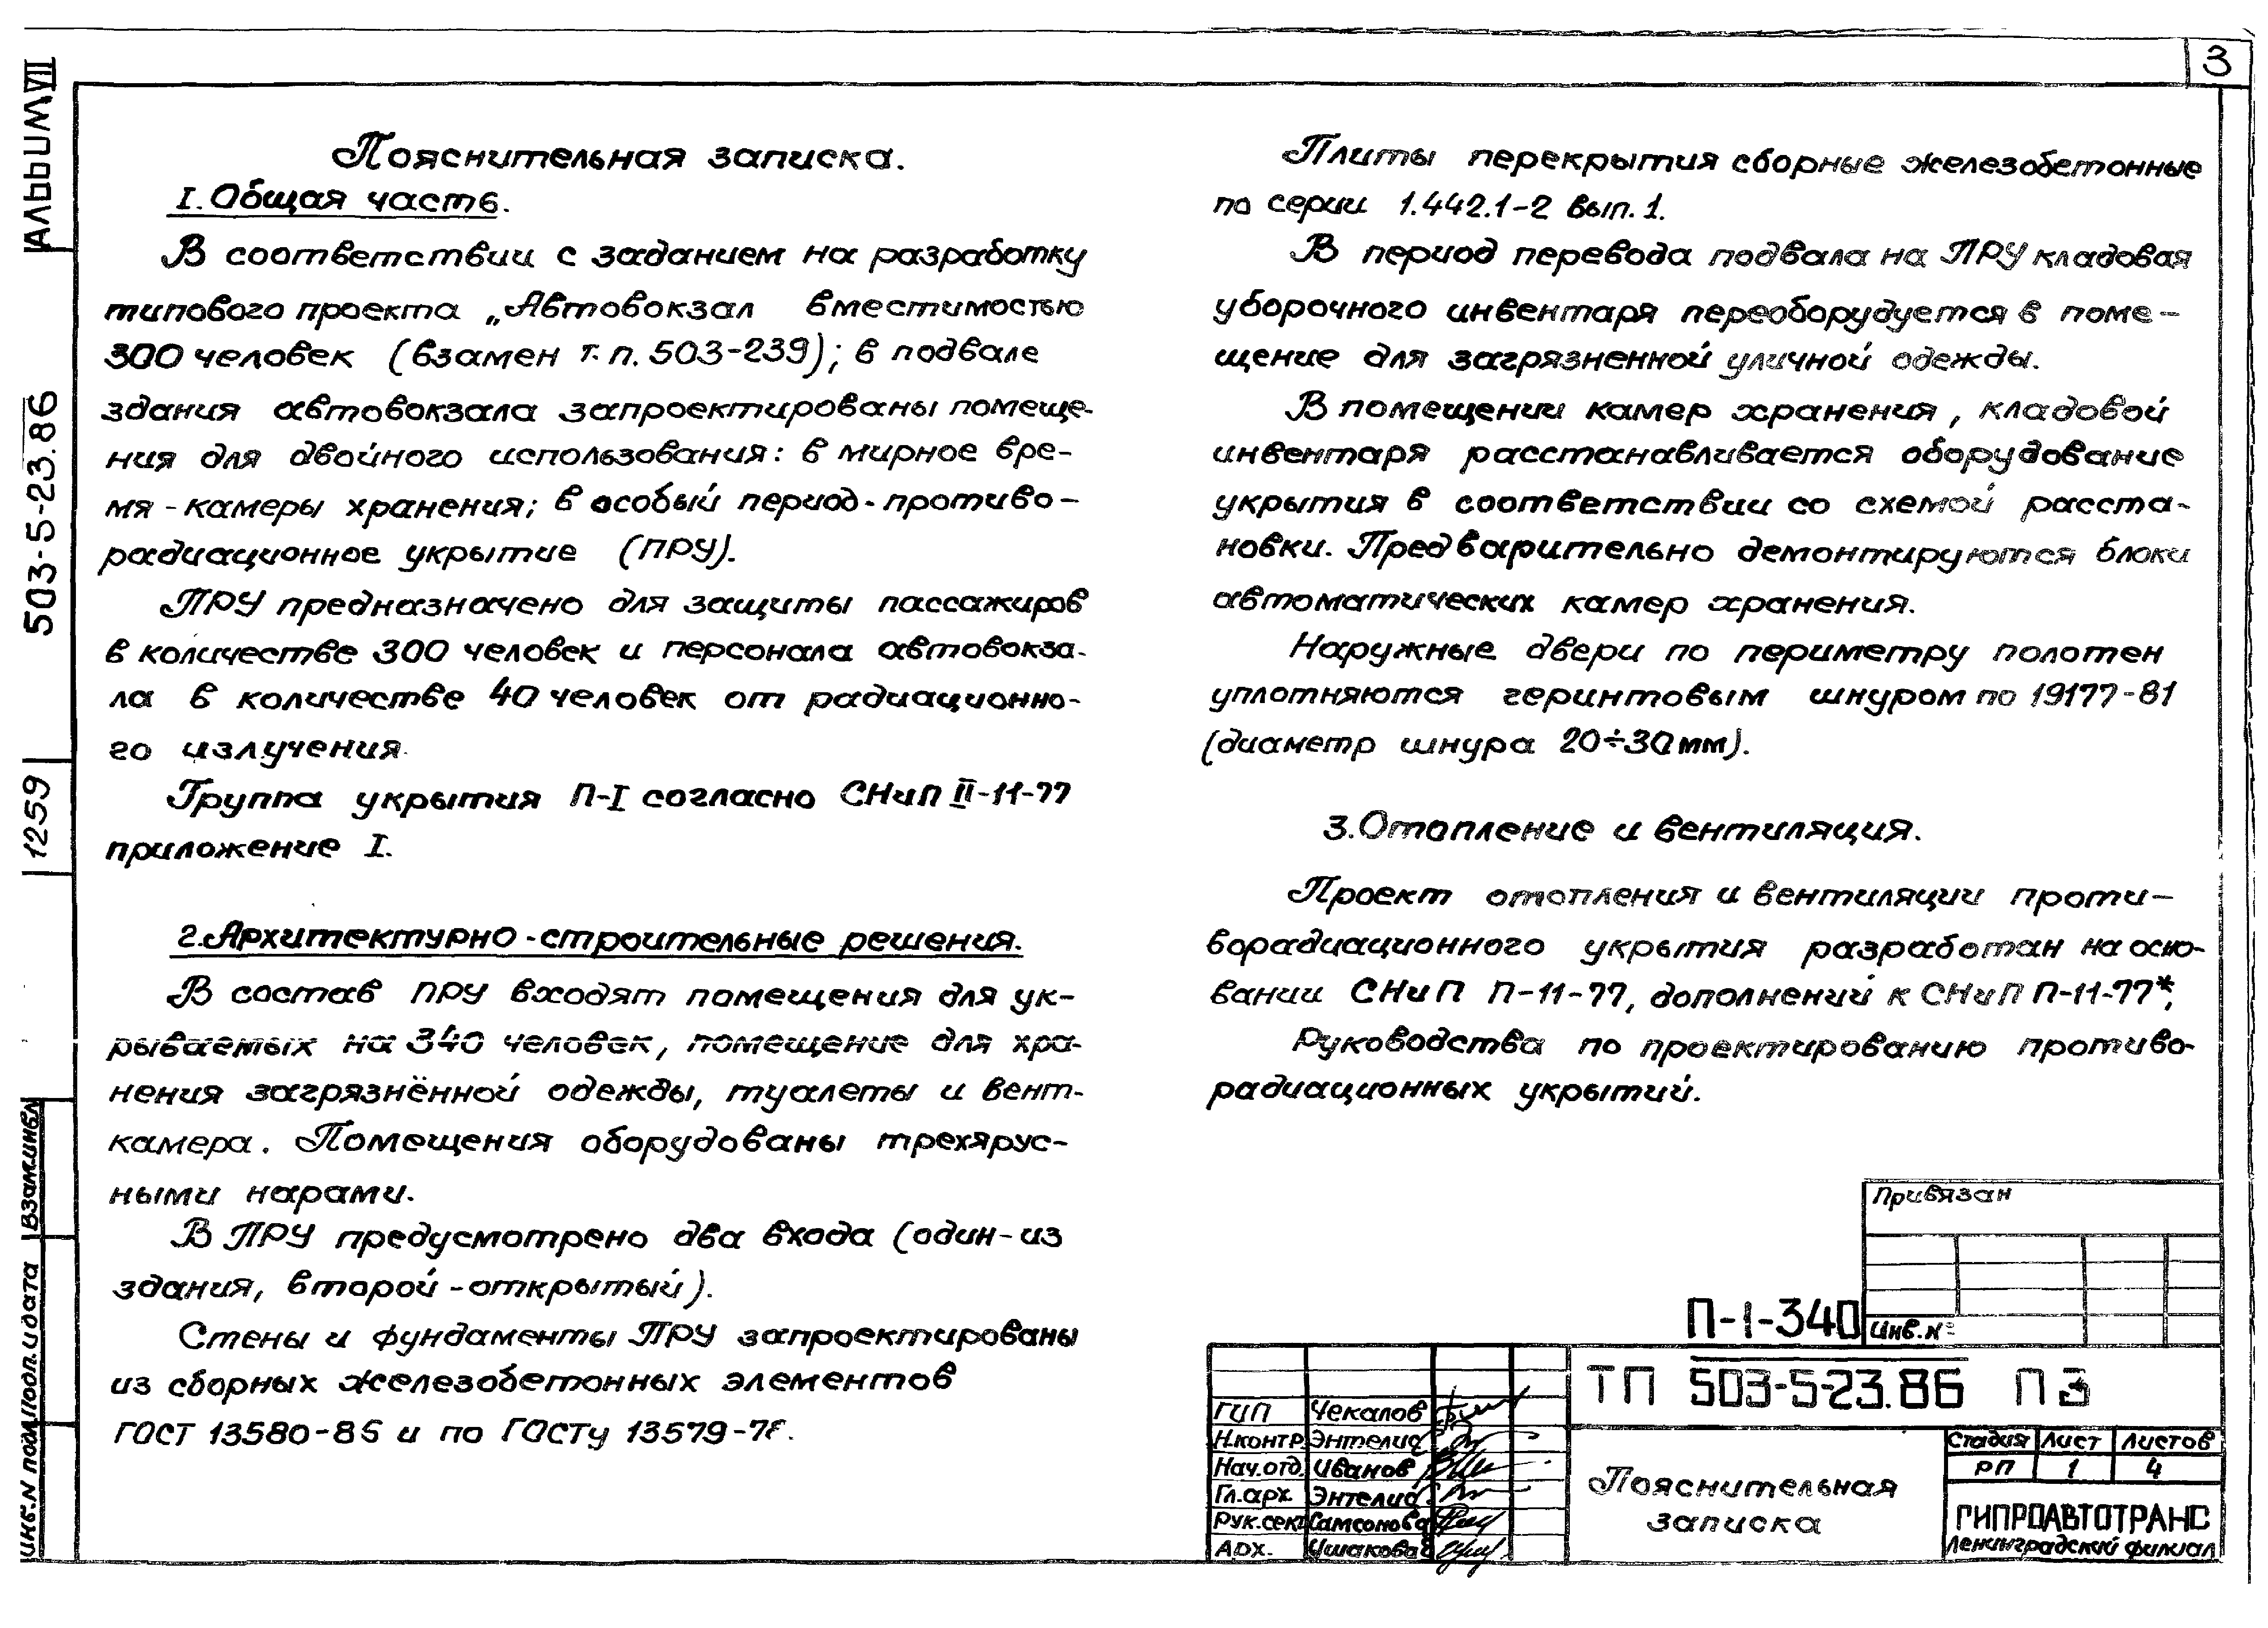 3
Альбом VII
503-5-23.86
1259
Взам.инв.
Подп. и дата
Инв.N подл.
Пояснительная записка.
I. Общая часть.
В соответствии с заданием на разработку
типового проекта „Автовокзал вместимостью
300 человек (взамен т.п. 503-239); в подвале
здания автовокзала запроектированы помеще-
ния для двойного использования: в мирное вре-
мя - камеры хранения; в особый период - противо-
радиационное укрытие (ПРУ).
ПРУ предназначено для защиты пассажиров
в количестве 300 человек и персонала автовокза-
ла в количестве 40 человек от радиационно-
го излучения.
Группа укрытия П-I согласно СНиП II-11-77
приложение I.
2. Архитектурно-строительные решения.
В состав ПРУ входят помещения для ук-
рываемых на 340 человек, помещение для хра-
нения загрязнённой одежды, туалеты и вент-
камера. Помещения оборудованы трехярус-
ными нарами.
В ПРУ предусмотрено два входа (один - из
здания, второй - открытый).
Стены и фундаменты ПРУ запроектированы
из сборных железобетонных элементов
ГОСТ 13580-85 и по ГОСТу 13579-78.
Плиты перекрытия сборные железобетонные
по серии 1.442.1-2 вып. 1.
В период перевода подвала на ПРУ кладовая
уборочного инвентаря переоборудуется в поме-
щение для загрязненной уличной одежды.
В помещении камер хранения, кладовой
инвентаря расстанавливается оборудование
укрытия в соответствии со схемой расста-
новки. Предварительно демонтируются блоки
автоматических камер хранения.
Наружные двери по периметру полотен
уплотняются геринтовым шнуром по 19177-81
(диаметр шнура 20÷30мм).
3. Отопление и вентиляция.
Проект отопления и вентиляции проти-
ворадиационного укрытия разработан на осно-
вании СНиП П-11-77, дополнений к СНиП П-11-77*,
Руководства по проектированию противо-
радиационных укрытий.
Привязан
Инв.№
П-1-340
ТП 503-5-23.86 ПЗ
ГИП Чекалов
Н.контр. Энтелис
Нач.отд. Иванов
Гл.арх. Энтелис
Рук.сект Самсонова
Арх. Ушакова
Пояснительная
записка
Стадия Лист Листов
РП 1 4
ГИПРОАВТОТРАНС
Ленинградский филиал